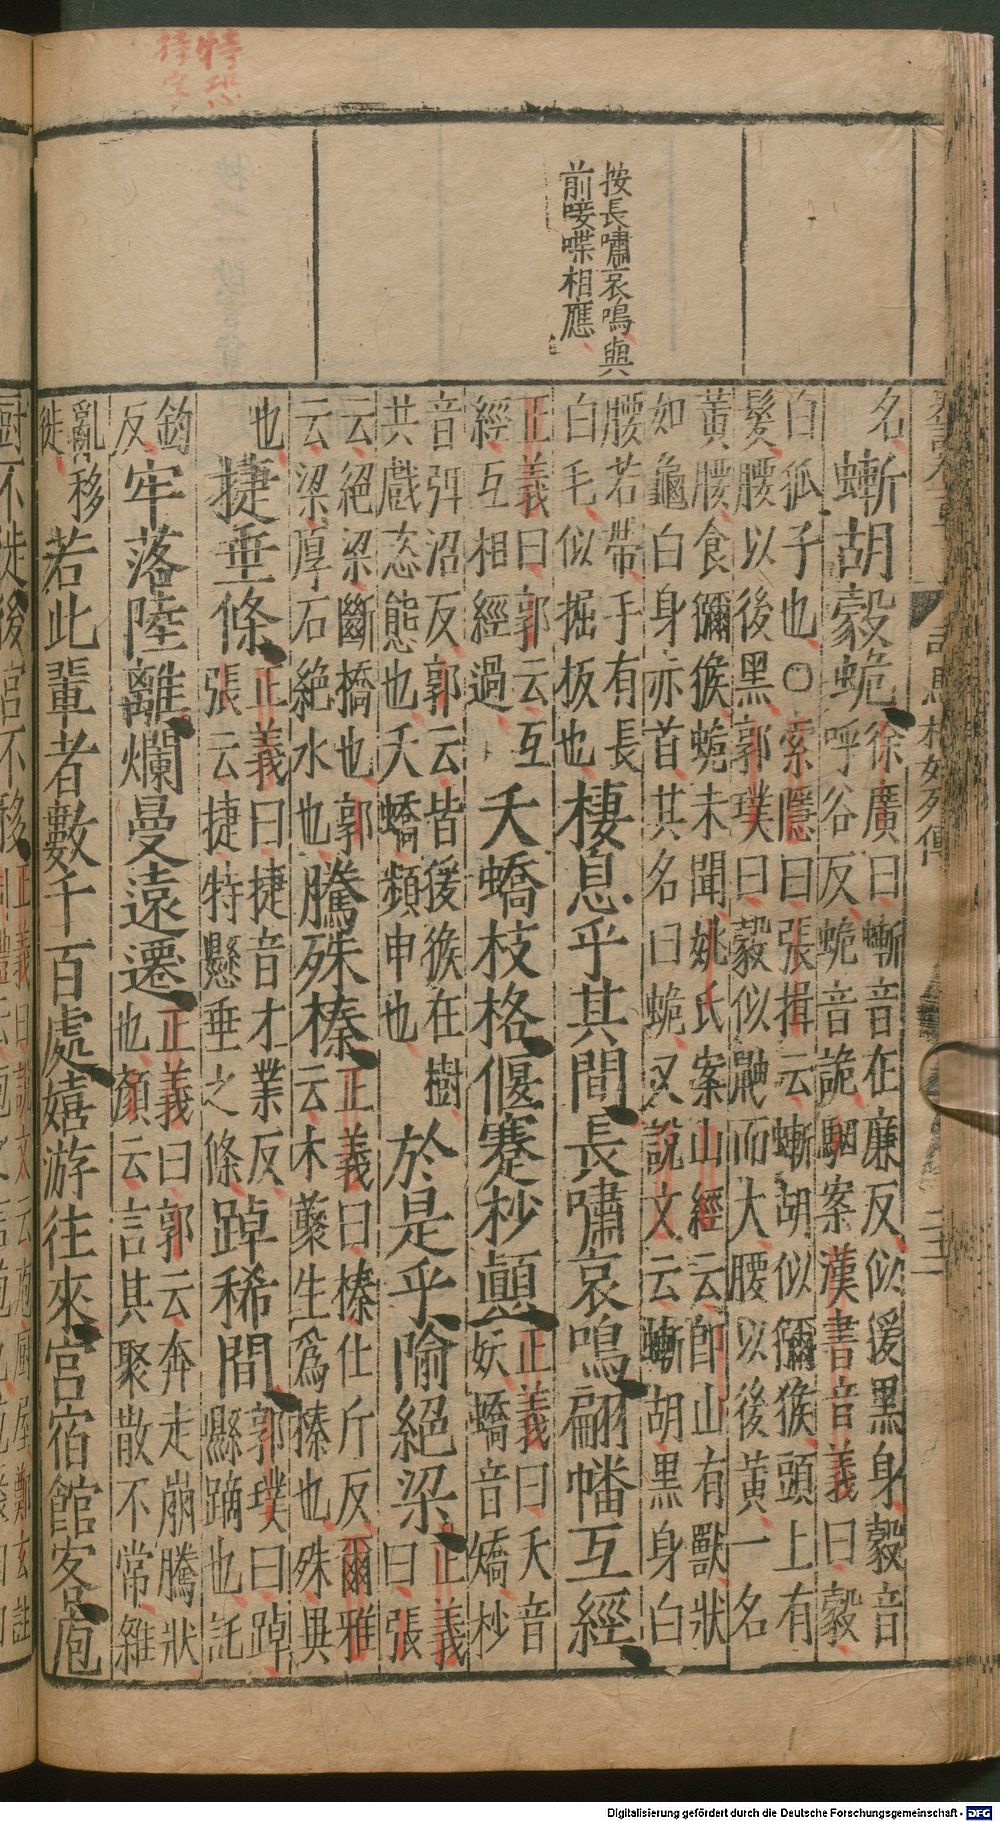 特恐
持字
按長嘯哀鳴與
前唼喋相應
名
螹胡豰蛫
徐廣曰螹音在廉反似猨黑身豰音
呼谷反蛫音詭駰案漢書音義曰豰
白狐子也○索隱曰張揖云螹胡似獼猴頭上有
髮腰以後黑郭璞曰豰似鼬而大腰以後黃一名
黃腰食獼猴蛫未聞姚氏案山經云卽山有獸狀
如龜白身亦首其名曰蛫又說文云螹胡黑身白
腰若帶手有長
白毛似掘板也
棲息乎其間長嘯哀鳴翩幡互經
正義曰郭云互
經互相經過
夭蟜枝格偃蹇杪顚
正義曰夭音
妖蟜音矯杪
音弭沼反郭云皆猨猴在樹
共戲恣態也夭蟜頻申也
於是乎隃絕梁
正義
曰張
云絕梁斷橋也郭
云梁厚石絕水也
騰殊榛
正義曰榛仕斤反爾雅
云木藂生爲榛也殊異
也
捷垂條
正義曰捷音才業反
張云捷特懸垂之條
踔稀間
郭璞曰踔
懸蹢也託
釣
反
牢落陸離爛曼遠遷
正義曰郭云奔走崩騰狀
也顏云言其聚散不常雜
亂移
徙
若此輩者數千百處嬉游往來宮宿館客庖
廚不徙後宮不移
司馬相如列傳
Digitalisierung gefördert durch die Deutsche Forschungsgemeinschaft - DFG